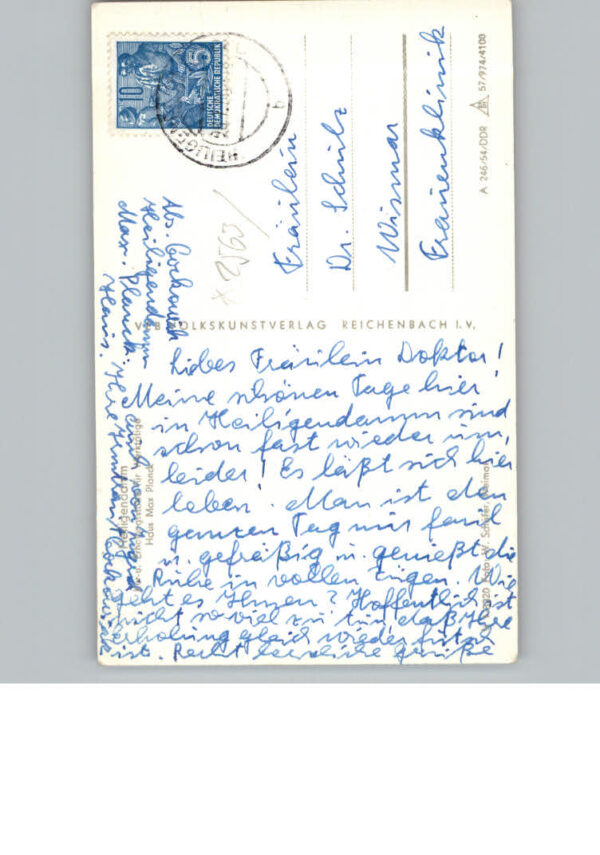 10 5
DEUTSCHE
DEMOKRATISCHE REPUBLIK
Fräulein
Dr. Schulz
Wismar
Frauenklinik
A 246/54/DDR 57/974/4100
* 2563/
Abs.
Heiligendamm
Max-Planck
Haus.
VEB VOLKSKUNSTVERLAG REICHENBACH I.V.
Liebes Fräulein Doktor!
Meine schönen Tage hier
in Heiligendamm sind
schon fast wieder um,
leider! Es läßt sich hier
leben. Man ist den
ganzen Tag nur faul
u. gefräßig u. genießt die
Ruhe in vollen Zügen. Wie
geht es Ihnen? Hoffentlich ist
nicht so viel zu tun, daß Ihre
Erholung gleich wieder futsch
ist. Recht herzliche Grüße
Ihre
Heiligendamm
Haus Max Planck